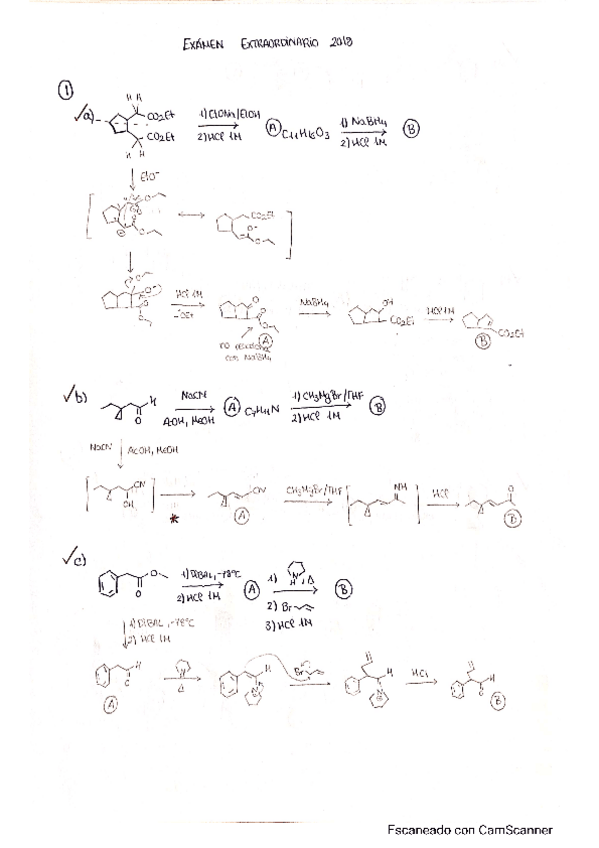 EXÁMEN EXTRAORDINARIO 2019
①
✓a) H H CO2Et CO2Et H H 1) EtONa/EtOH 2) HCl 1M Ⓐ C11H16O3 1) NaBH4 2) HCl 1M Ⓑ
EtO⁻
CO2Et
HCl 1M -OEt NaBH4 OH CO2Et HCl 1M CO2Et
Ⓐ Ⓑ
no reacciona
con NaBH4
✓b) H O NaCN AcOH, MeOH Ⓐ C7H11N 1) CH3MgBr/THF 2) HCl 1M Ⓑ
NaCN AcOH, MeOH
CN OH * CN Ⓐ CH3MgBr/THF NH HCl O Ⓑ
✓c) O O 1) DIBAL, -78ºC 2) HCl 1M Ⓐ 1) N H , Δ 2) Br 3) HCl 1M Ⓑ
1) DIBAL, -78ºC
2) HCl 1M
H O Ⓐ N H Δ H N Br H N HCl H O Ⓑ
Escaneado con CamScanner